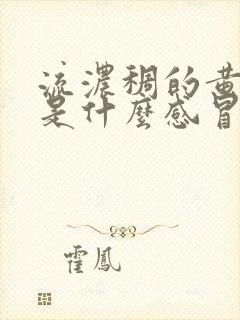 流濃稠的黄
是什麼感冒
霍鳳